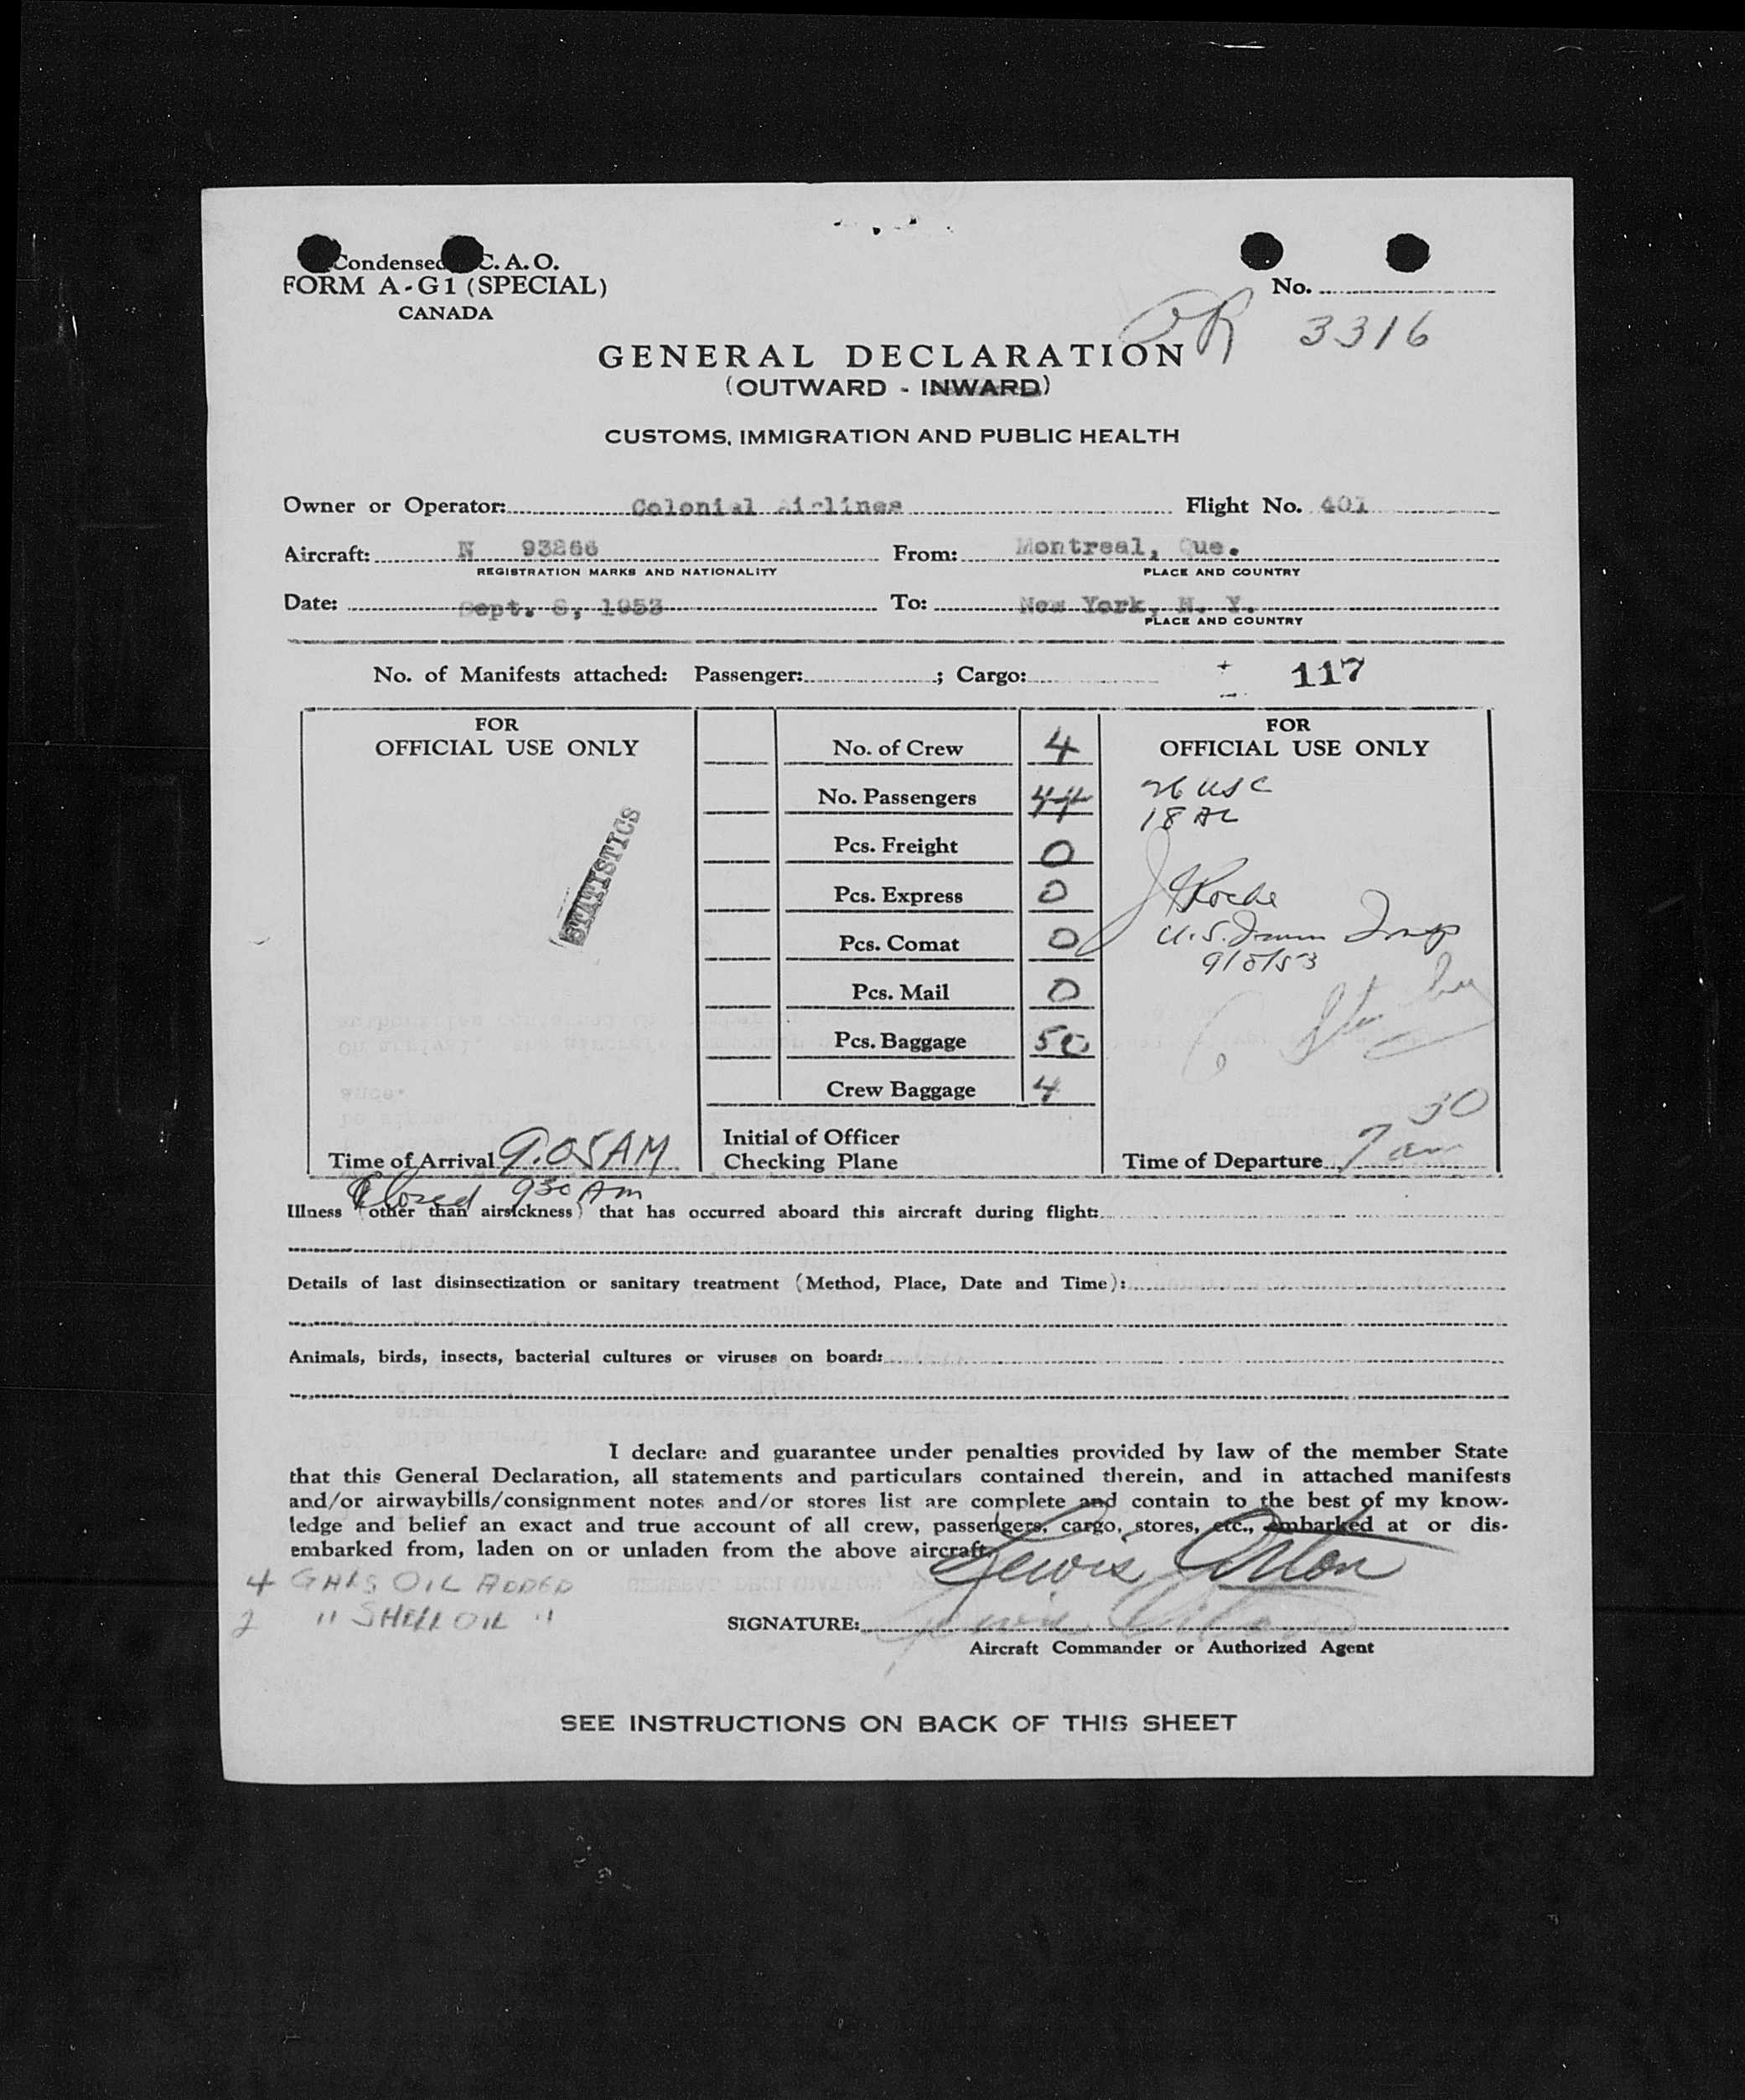 Condensed C.A.O.
FORM A-G1 (SPECIAL)
CANADA
No.
3316
GENERAL DECLARATION
(OUTWARD - INWARD)
CUSTOMS, IMMIGRATION AND PUBLIC HEALTH
Owner or Operator: Colonial Airlines Flight No. 401
Aircraft: N 93266 From: Montreal, Que.
REGISTRATION MARKS AND NATIONALITY PLACE AND COUNTRY
Date: Sept. 8, 1953 To: New York, N. Y.
PLACE AND COUNTRY
No. of Manifests attached: Passenger: ; Cargo: 117
FOR
OFFICIAL USE ONLY
STATISTICS
Time of Arrival 9.05 AM
Closed 930 Am
No. of Crew 4
No. Passengers 44
Pcs. Freight 0
Pcs. Express 0
Pcs. Comat 0
Pcs. Mail 0
Pcs. Baggage 50
Crew Baggage 4
Initial of Officer
Checking Plane
FOR
OFFICIAL USE ONLY
26 USC
18 AL
Roche
U.S. Imm Insp
9/8/53
Time of Departure 7 30 am
Illness (other than airsickness) that has occurred aboard this aircraft during flight:
Details of last disinsectization or sanitary treatment (Method, Place, Date and Time):
Animals, birds, insects, bacterial cultures or viruses on board:
I declare and guarantee under penalties provided by law of the member State
that this General Declaration, all statements and particulars contained therein, and in attached manifests
and/or airwaybills/consignment notes and/or stores list are complete and contain to the best of my know-
ledge and belief an exact and true account of all crew, passengers, cargo, stores, etc., embarked at or dis-
embarked from, laden on or unladen from the above aircraft.
Lewis Orton
4 GALS OIL ADDED
2 " SHELL OIL "
SIGNATURE: Lewis Orton
Aircraft Commander or Authorized Agent
SEE INSTRUCTIONS ON BACK OF THIS SHEET